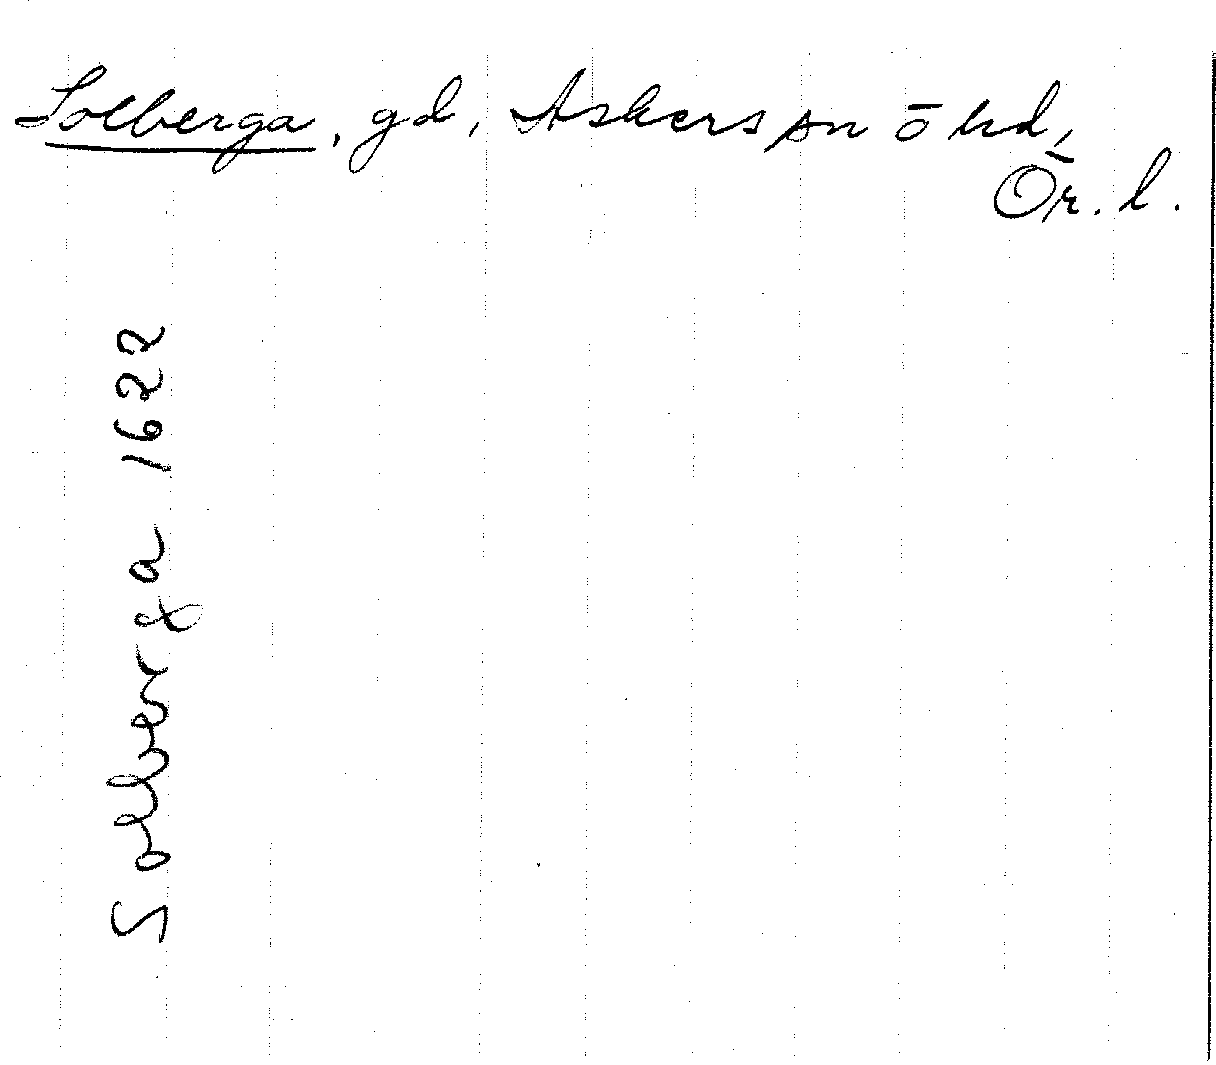 Solberga, gd, Askers sn ö hd,
Ör. l.
Solberga 1622